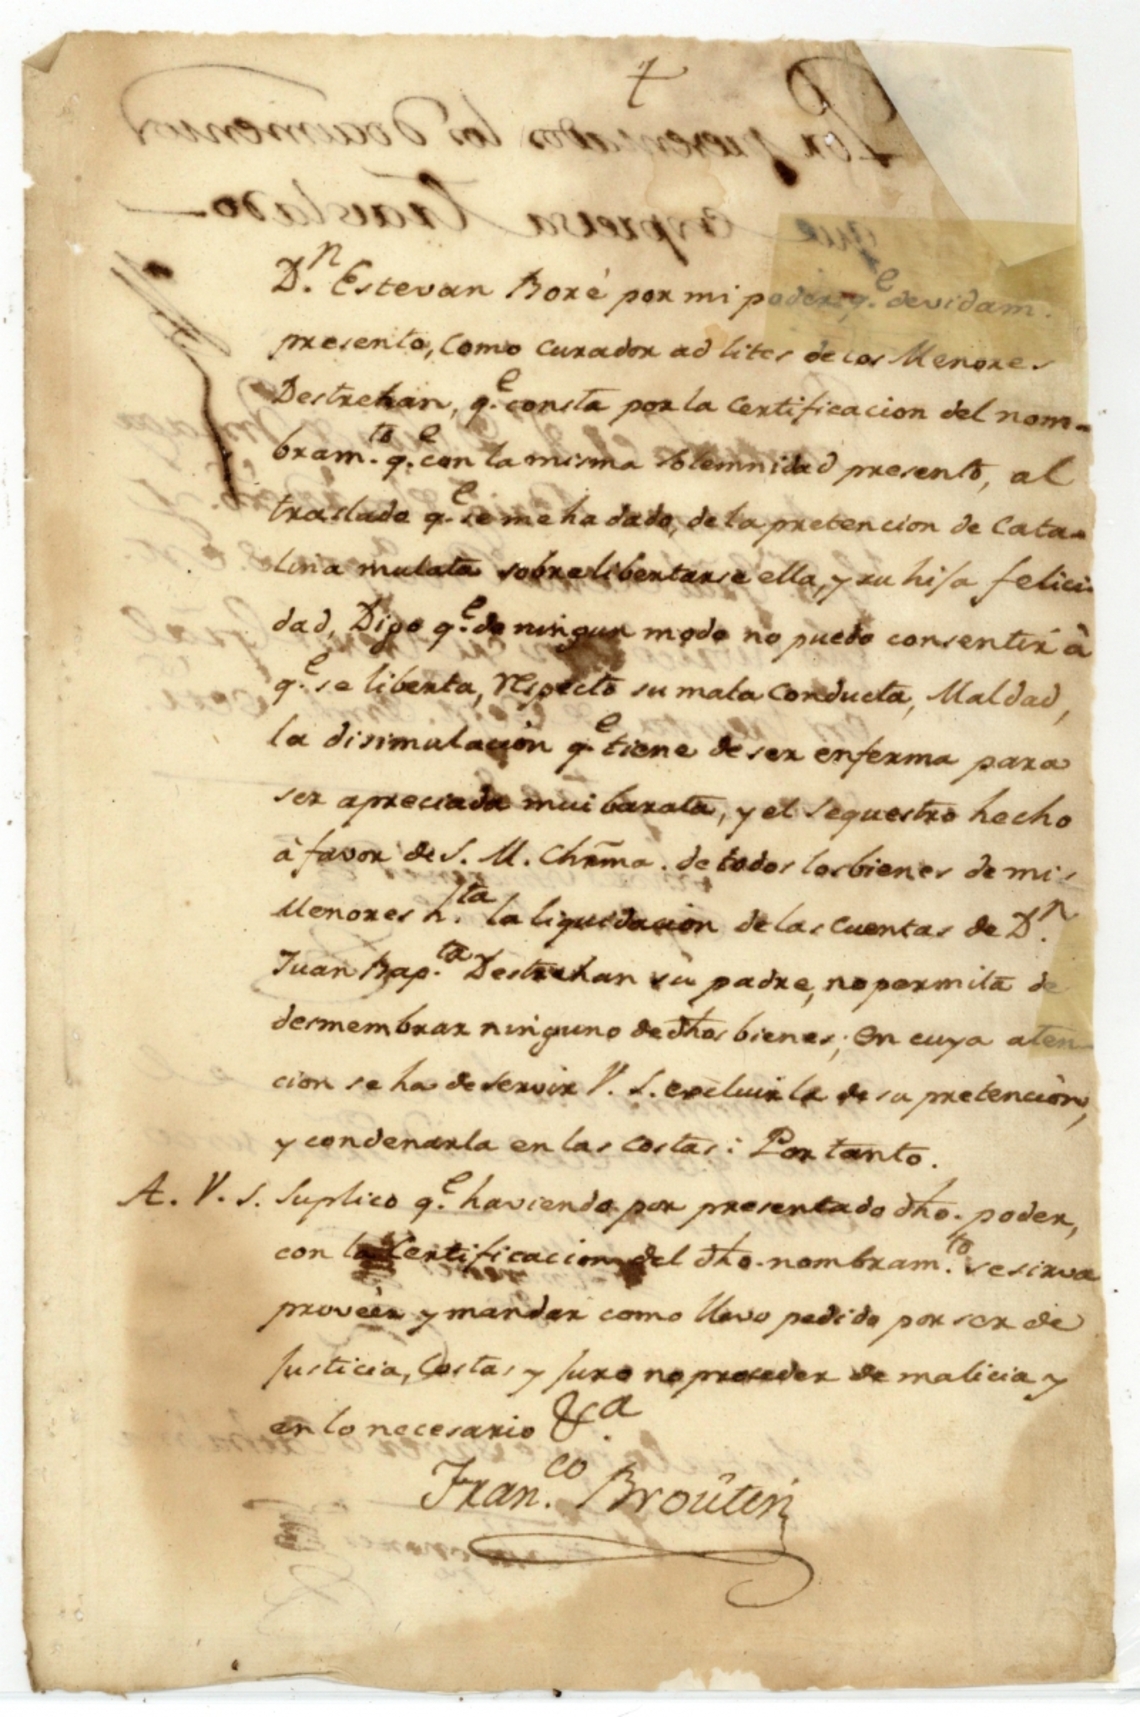 †
D.n Estevan Boré por mi poder q.e devidam.
presento, como curador ad lites de los Menores
Destrehan, q.e consta por la Certificacion del nom-
bram.to q.e con la misma solemnidad presento, al
traslado q.e se me ha dado, de la pretencion de Cata-
lina mulata sobre libertarse ella, y su hija felici-
dad, Digo q.e de ningun modo no puedo consentir à
q.e se liberta, respecto su mala Conducta, Maldad,
la disimulación q.e tiene de ser enferma para
ser apreciada mui barata, y el sequestro hecho
à favor de S. M. Chrma. de todos los bienes de mis
Menores h.ta la liquidacion de las cuentas de D.n
Juan Bap.ta Destrehan su padre, no permita de
desmembrar ninguno de dhos bienes; En cuya aten-
cion se ha de servir V. S. excluirla de su pretención,
y condenarla en las costas: Por tanto.
A. V. S. Suplico q.e haviendo por presentado dho. poder,
con la Certificacion del dho. nombram.to se sirva
proveér y mandar como llevo pedido por ser de
Justicia, Costas y juro no proceder de malicia y
en lo necesario &.a
Fran.co Broûtin